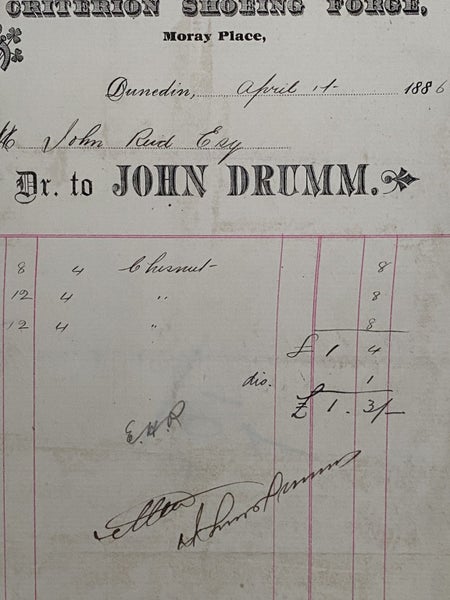 CRITERION SHOEING FORGE,
Moray Place,
Dunedin, April 1st 1886
John Reid Esq
Dr. to JOHN DRUMM.
8 4 Chesnut 8
12 4 " 8
12 4 " 8
£ 1 4
dis. 1
£ 1. 3/-
E.H.R
John Drumm